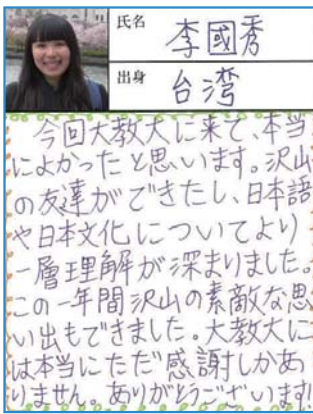 氏名 李國秀
出身 台湾
今回大教大に来て、本当
によかったと思います。沢山
の友達ができたし、日本語
や日本文化についてより
一層理解が深まりました。
この一年間沢山の素敵な思
い出もできました。大教大に
は本当にただ感謝しかあ
りません。ありがとうございます!